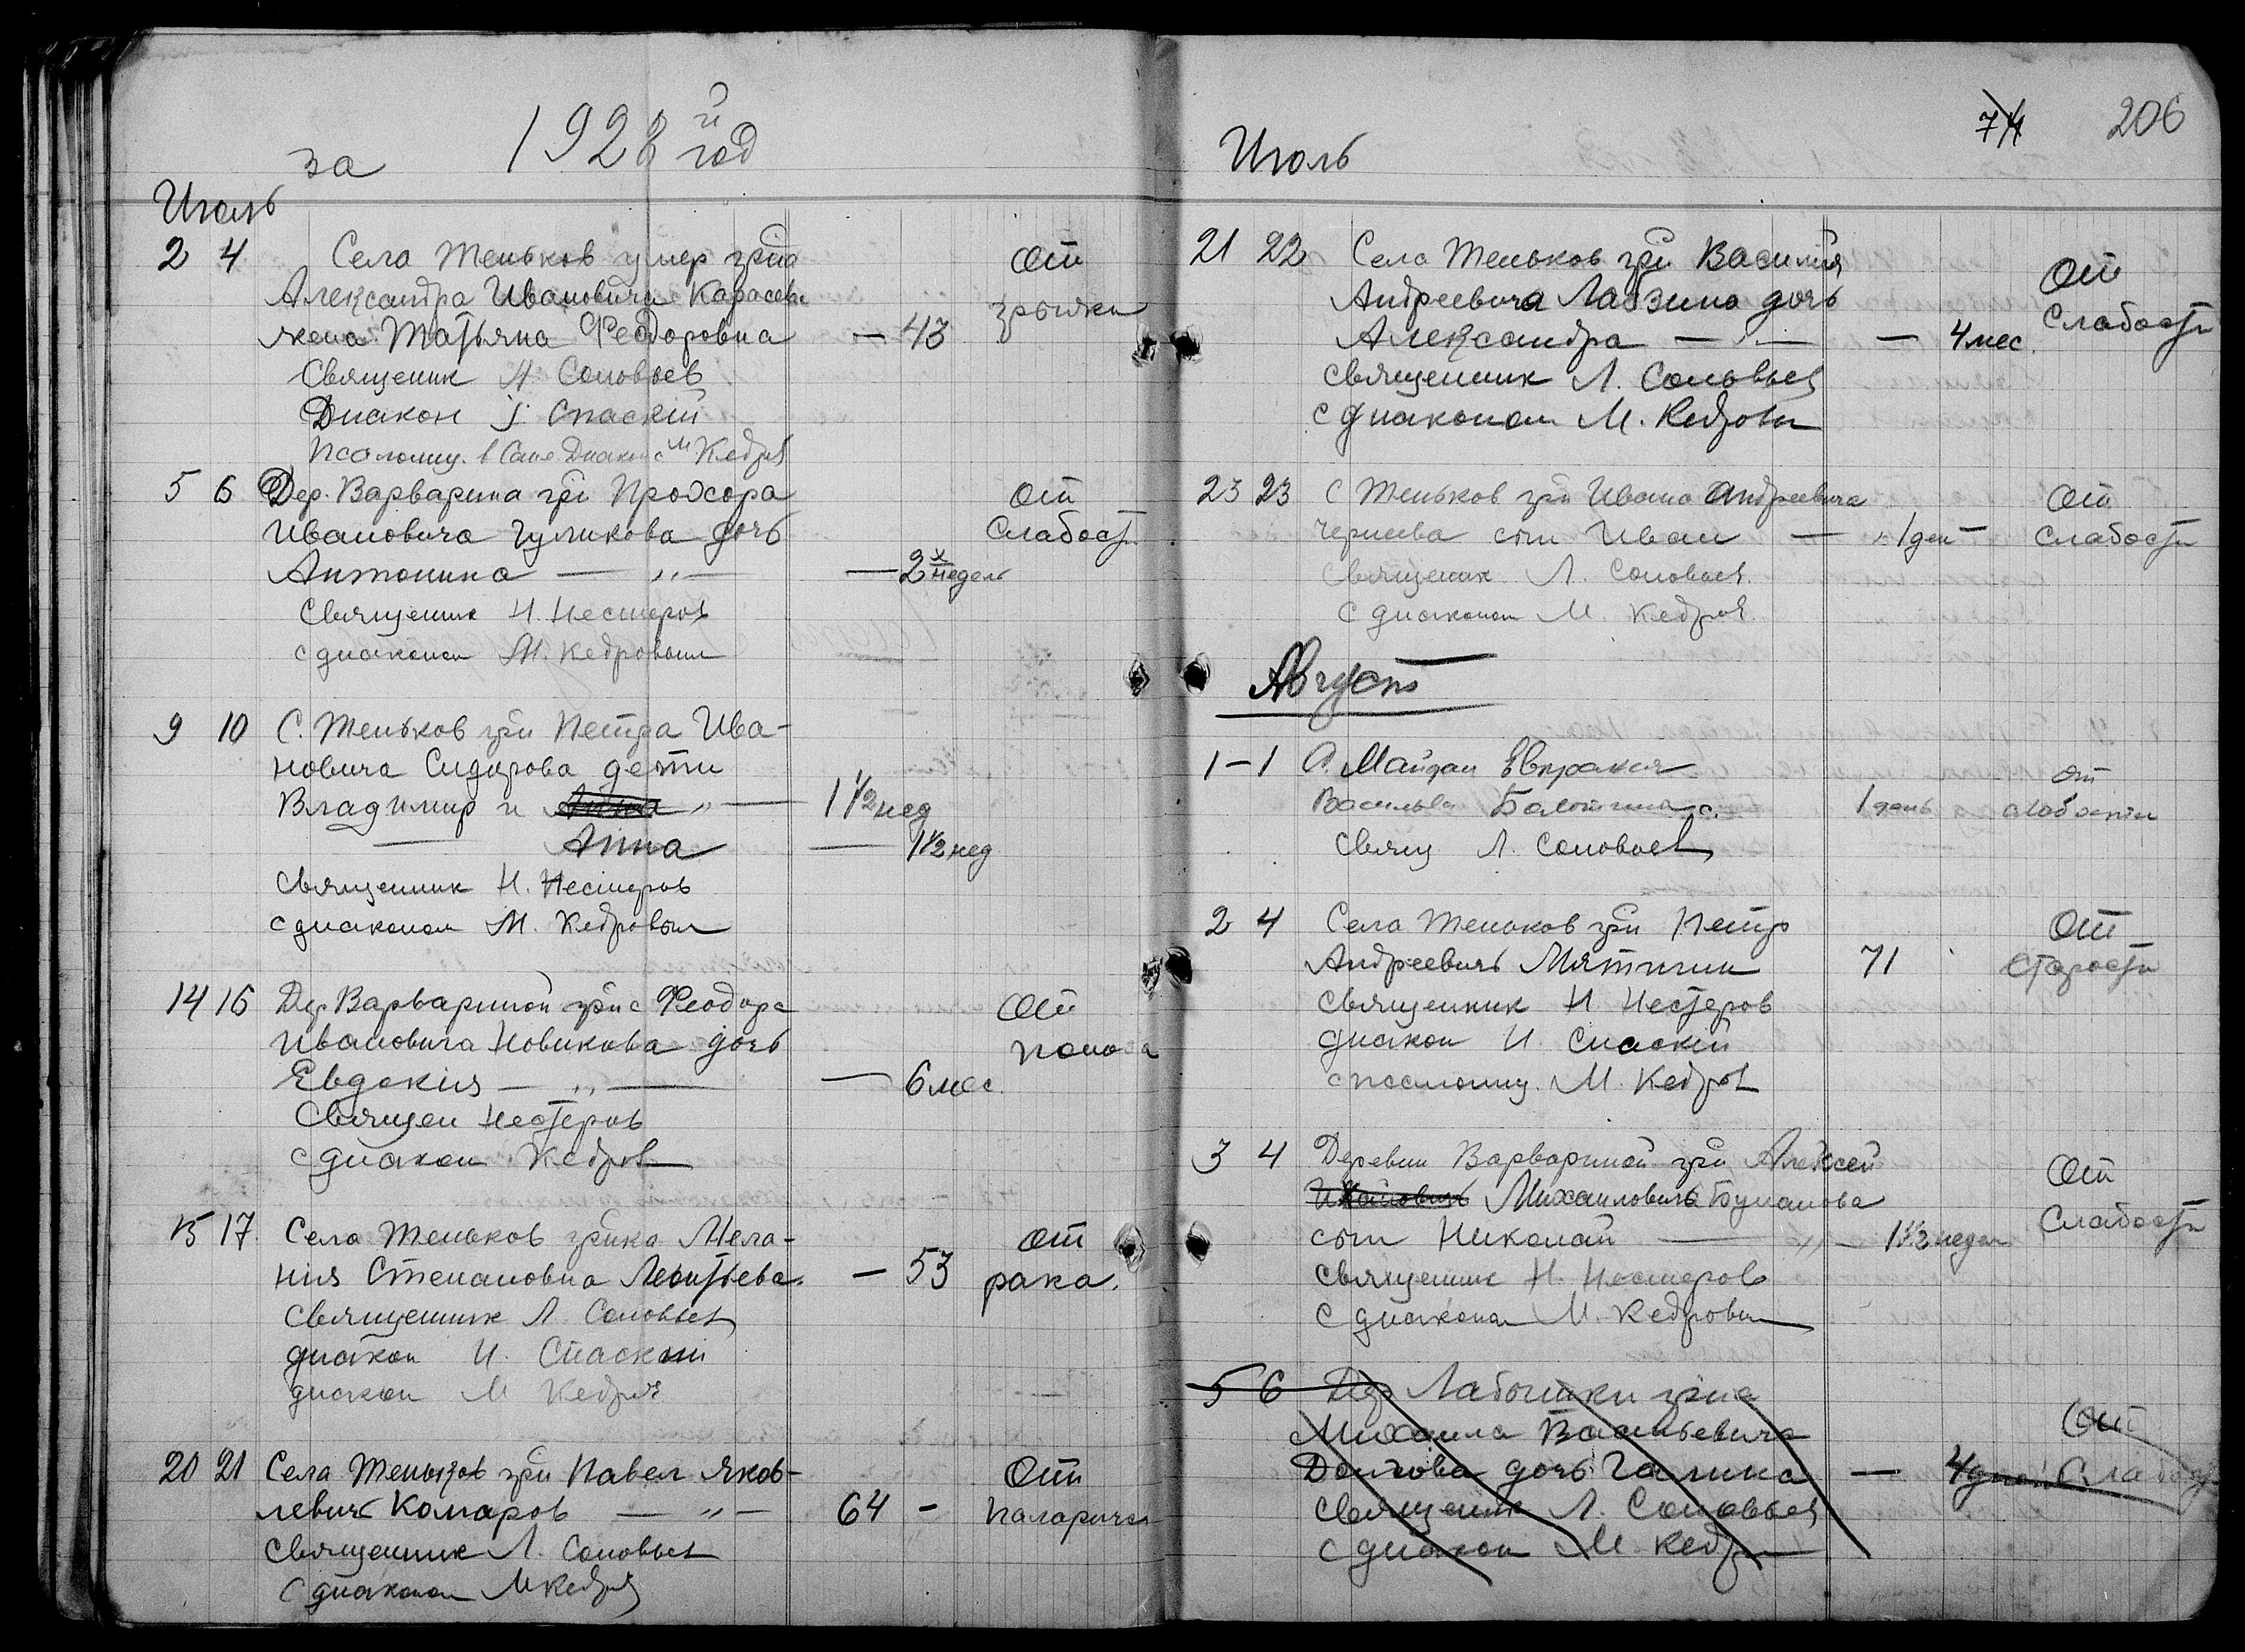 за 1928 й год
Июль
2 4 Села Теньков умер гр-на
Александра Ивановича Карасева
жена Татьяна Феодоровна — 43 От грыжи
Священик Л Соловьев
Диакон І. Спаскій
Псаломщ. в Сане Диакона М. Кедров
5 6 Дер. Варварина гр-н Прохора
Ивановича Гуликова дочь От Слабости
Антонина — „ — — 2х недель
Священик Н. Нестеров
с диаконом М. Кедровым
9 10 С. Теньков гр-н Петра Ива-
новича Сидорова дети
Владимир и Анна „ — 1 1/2 нед
— Анна — 1 1/2 нед
Священник Н. Нестеров
с диаконом М. Кедровым
14 16 Дер Варвариной гр-на Феодора От
Ивановича Новикова дочь поноса
Евдокия — „ — — 6 мес.
Священ Нестеров
с диакон Кедров
15 17. Села Теньков гр-нка Мела- От
ния Степановна Леонтьева. — 53 рака.
Священник Л. Соловьев
диакон И. Спаский
диакон М Кедров
20 21 Села Теньков гр-н Павел Яков- От
левич Комаров — „ — 64 — паларича
Священник Л. Соловьев
с диаконом М Кедров
74 206
Июль
21 22 Села Теньков гр-н Василия От
Андреевича Лабзина дочь Слабости
Александра — „ — — 4 мес.
священник Л. Соловьев
с диаконом М. Кедровым
23 23 С Теньков гр-н Ивана Андреевича От
сын Иван — 1 ден — Слабости
Священик Л. Соловьев.
с диаконом М. Кедров.
Август
1 — 1 С. Майдан Евпраксия От
Васильев 1 день слабости
Свящ Л. Соловьев
2 4 Села Теньков гр-н Петр От
Андреевич Мятишин 71 Старости
Священник Н Нестеров
диакон И Спаскій
с псаломщ. М. Кедров
3 4 Деревни Варвариной гр-н Алексей От
Иванович Михаиловича Буланова Слабости
сын Николай — „ — 1 1/2 недел
Священик Н. Нестеров
с диаконом М. Кедровым
5 6 Дер Лабышки гр-на
Михаила Васильевича От
Долгова дочь Галина — 4 дней Слабости
Священик Л. Соловьев
с диакон М. Кедров